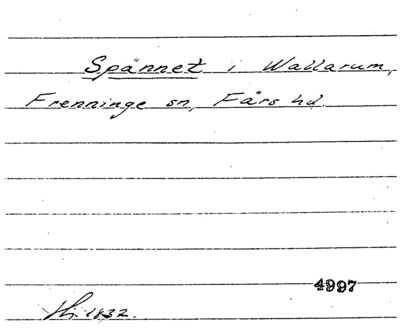 Spännet i Wallarum,
Frenninge sn, Färs hd.
4997
1832.